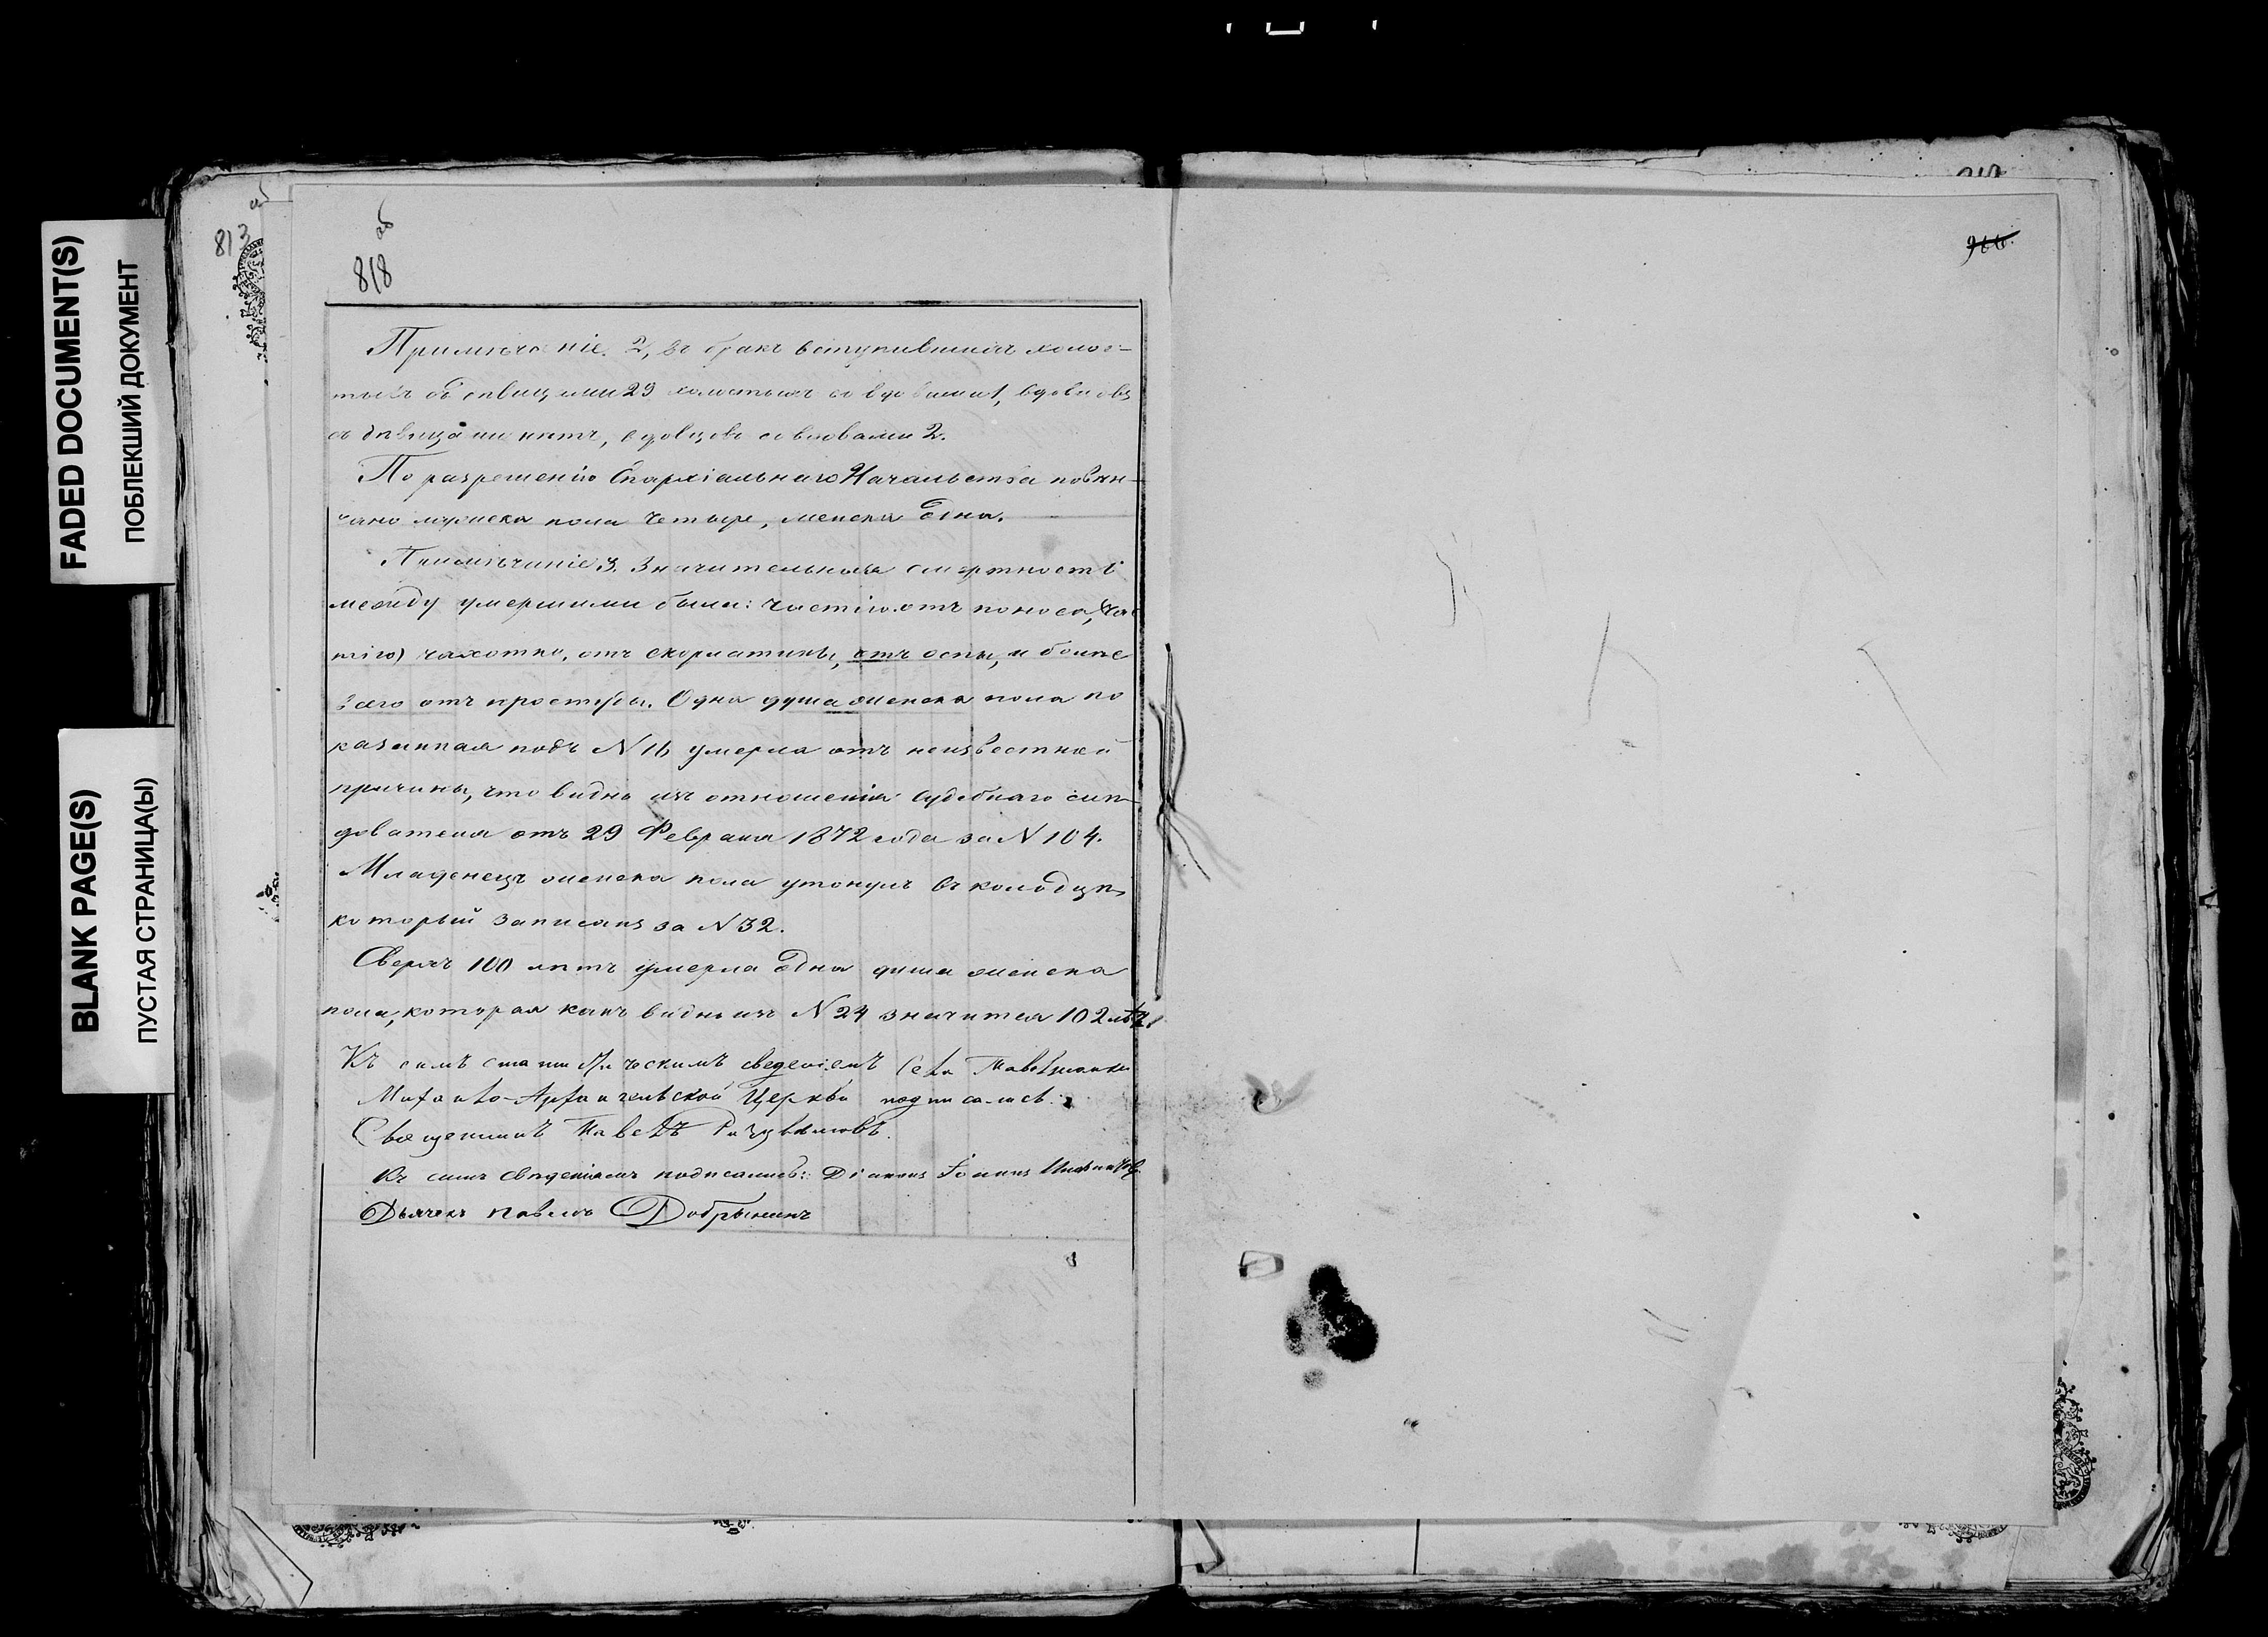 FADED DOCUMENT(S)
ПОБЛЕКШИЙ ДОКУМЕНТ
BLANK PAGE(S)
ПУСТАЯ СТРАНИЦА(Ы)
813 об
818 об
Примѣчаніе. 2, въ бракъ вступившихъ холос-
тыхъ съ дѣвицами 29 холостыхъ со вдовами 1, вдовцовъ
съ дѣвицами нѣтъ, вдовцовъ со вдовами 2.
По разрешенію Епархіальнаго Начальства повѣн-
чано мужска пола четыре, женска одна.
Примѣчаніе 3. Значительная смертность
между умершими была: частію отъ поноса, час
тію чахотки, отъ скорлатины, отъ оспы, и болѣе
всего отъ простуды. Одна душа женска пола по
казанная подъ N 16 умерла отъ неизвестной
причины, что видно изъ отношенія Судебнаго слѣ-
дователя отъ 29 Февраля 1872 года за N 104.
Младенецъ женска пола утонулъ въ колодцѣ,
который записанъ за N 32.
Сверхъ 100 лѣтъ умерла одна душа женска
пола, которая какъ видно изъ N 24 значится 102 лѣтъ.
Къ симъ статистическимъ сведеніемъ Села
Михаило-Архангельской Церкви подписались:
Священникъ Павелъ
Къ симъ сведеніямъ подписались: Діаконъ Іоаннъ
Дьячекъ Павелъ Добрынинъ